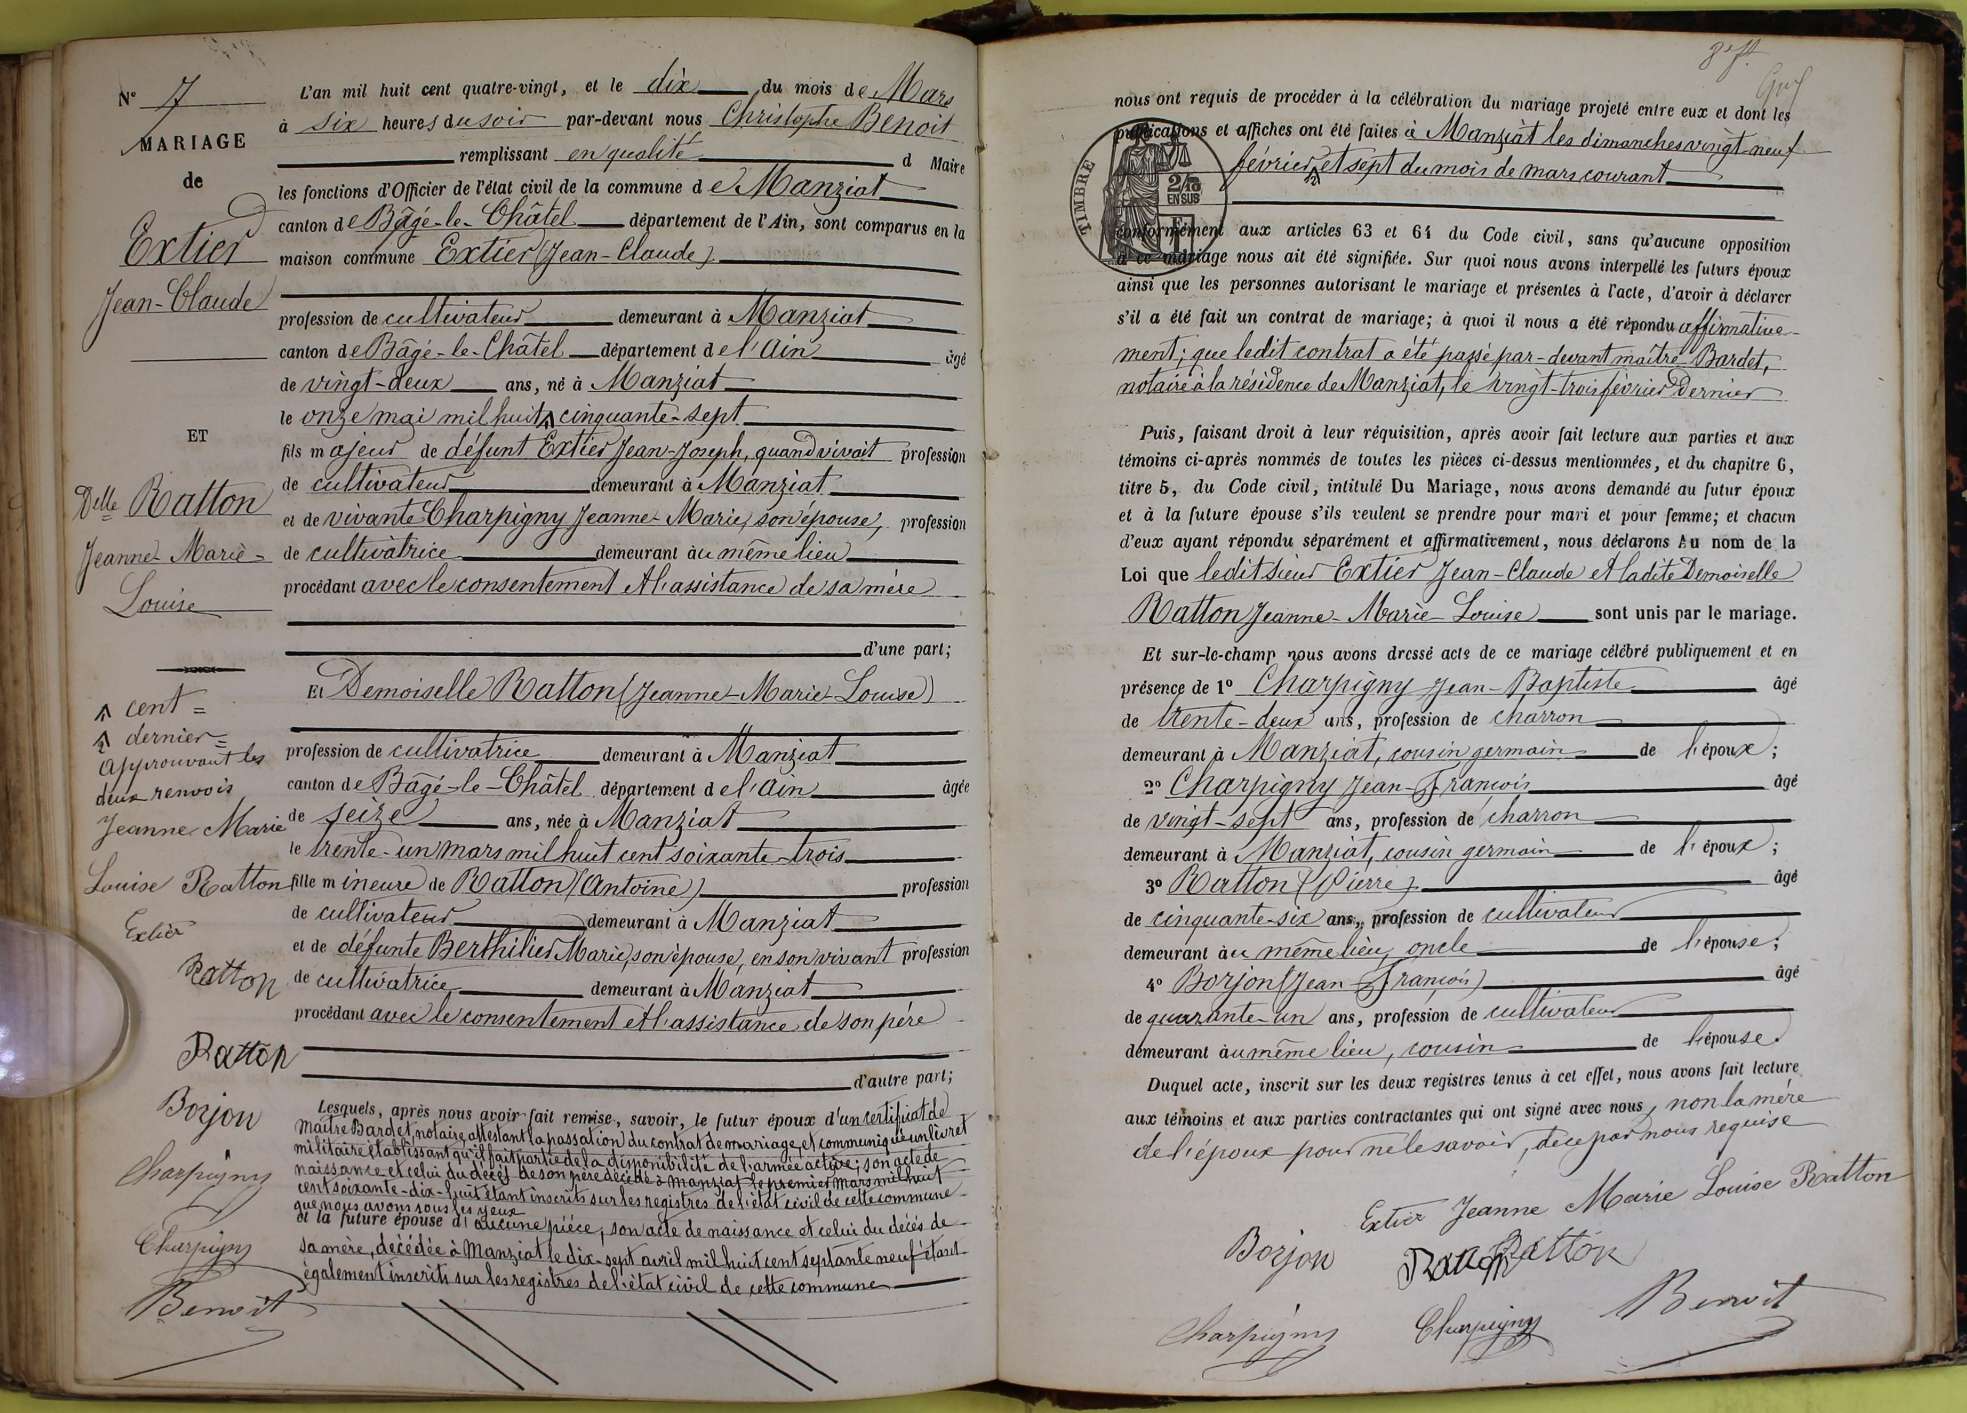 N° 7
MARIAGE
de
Extier
Jean-Claude
ET
Delle Ratton
Jeanne-Marie-
Louise
cent =
dernier =
approuvant les
deux renvois
Jeanne Marie
Louise Ratton
Extier
Ratton
Ratton
Borjon
Charpigny
Charpigny
Benoit
L'an mil huit cent quatre-vingt, et le dix du mois de Mars
à six heures du soir par-devant nous Christophe Benoit
remplissant en qualité d Maire
les fonctions d'Officier de l'état civil de la commune de Manziat
canton de Bâgé-le-Châtel département de l'Ain, sont comparus en la
maison commune Extier (Jean-Claude)
profession de cultivateur demeurant à Manziat
canton de Bâgé-le-Châtel département de l'Ain âgé
de vingt-deux ans, né à Manziat
le onze mai mil huit cinquante-sept
fils majeur de défunt Extier Jean-Joseph, quand vivait profession
de cultivateur demeurant à Manziat
et de vivante Charpigny Jeanne-Marie, son épouse, profession
de cultivatrice demeurant au même lieu
procédant avec le consentement et l'assistance de sa mère
d'une part;
Et Demoiselle Ratton (Jeanne-Marie-Louise)
profession de cultivatrice demeurant à Manziat
canton de Bâgé-le-Châtel département de l'Ain âgée
de seize ans, née à Manziat
le trente-un mars mil huit cent soixante-trois
fille mineure de Ratton (Antoine) profession
de cultivateur demeurant à Manziat
et de défunte Berthilier Marie, son épouse, en son vivant profession
de cultivatrice demeurant à Manziat
procédant avec le consentement et l'assistance de son père
d'autre part;
Lesquels, après nous avoir fait remise, savoir, le futur époux d'un certificat de
Maître Bardet, notaire attestant la passation du contrat de mariage, et communiqué un livret
militaire établissant qu'il fait partie de la disponibilité de l'armée active; son acte de
naissance et celui du décès de son père décédé à Manziat le premier mars mil huit
cent soixante-dix-huit étant inscrits sur les registres de l'état civil de cette commune
que nous avons sous les yeux
et la future épouse d'aucune pièce, son acte de naissance et celui du décès de
sa mère, décédée à Manziat le dix-sept avril mil huit cent septante neuf étant
également inscrits sur les registres de l'état civil de cette commune
nous ont requis de procéder à la célébration du mariage projeté entre eux et dont les
publications et affiches ont été faites à Manziat les dimanches vingt-neuf
février et sept du mois de mars courant
TIMBRE
2/10
EN SUS
conformément aux articles 63 et 64 du Code civil, sans qu'aucune opposition
à ce mariage nous ait été signifiée. Sur quoi nous avons interpellé les futurs époux
ainsi que les personnes autorisant le mariage et présentes à l'acte, d'avoir à déclarer
s'il a été fait un contrat de mariage; à quoi il nous a été répondu affirmative-
ment; que ledit contrat a été passé par-devant maître Bardet,
notaire à la résidence de Manziat, le vingt-trois février dernier
Puis, faisant droit à leur réquisition, après avoir fait lecture aux parties et aux
témoins ci-après nommés de toutes les pièces ci-dessus mentionnées, et du chapitre 6,
titre 5, du Code civil, intitulé Du Mariage, nous avons demandé au futur époux
et à la future épouse s'ils veulent se prendre pour mari et pour femme; et chacun
d'eux ayant répondu séparément et affirmativement, nous déclarons Au nom de la
Loi que ledit sieur Extier Jean-Claude et la dite Demoiselle
Ratton Jeanne-Marie-Louise sont unis par le mariage.
Et sur-le-champ nous avons dressé acte de ce mariage célébré publiquement et en
présence de 1° Charpigny Jean-Baptiste âgé
de trente-deux ans, profession de charron
demeurant à Manziat, cousin germain de l'époux;
2° Charpigny Jean-François âgé
de vingt-sept ans, profession de charron
demeurant à Manziat, cousin germain de l'époux;
3° Ratton (Pierre) âgé
de cinquante-six ans, profession de cultivateur
demeurant au même lieu, oncle de l'épouse;
4° Borjon (Jean-François) âgé
de quarante-un ans, profession de cultivateur
demeurant au même lieu, cousin de l'épouse.
Duquel acte, inscrit sur les deux registres tenus à cet effet, nous avons fait lecture
aux témoins et aux parties contractantes qui ont signé avec nous, non la mère
de l'époux pour ne le savoir, de ce par nous requise
Extier Jeanne Marie Louise Ratton
Borjon Ratton Ratton
Charpigny Charpigny Benoit